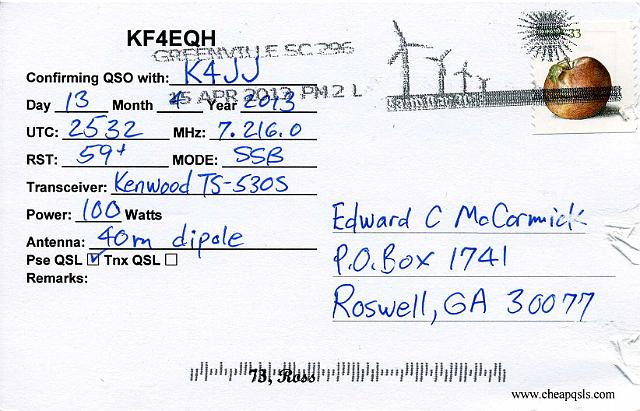 KF4EQH
GREENVILLE SC 296
15 APR 2013 PM 2 L
33
Confirming QSO with: K4JJ
Day 13 Month 4 Year 2013
UTC: 2532 MHz: 7.216.0
RST: 59+ MODE: SSB
Transceiver: Kenwood TS-530S
Power: 100 Watts
Antenna: 40m dipole
Pse QSL ☑ Tnx QSL ☐
Remarks:
Edward C McCormick
P.O. Box 1741
Roswell, GA 30077
73, Ross
www.cheapqsls.com